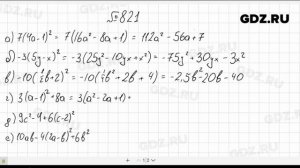 GDZ.RU
№821
а) 7(4a-1)² = 7(16a²-8a+1) = 112a²-56a+7
б) -3(5y-x)² = -3(25y²-10yx+x²) = -75y²+30yx-3x²
в) -10(½b+2)² = -10(¼b²+2b+4) = -2,5b²-20b-40
г) 3(a-1)²+8a = 3(a²-2a+1)+
д) 9c²-4+6(c-2)²
е) 10ab-4(2a-b)²+6b²
GDZ.RU